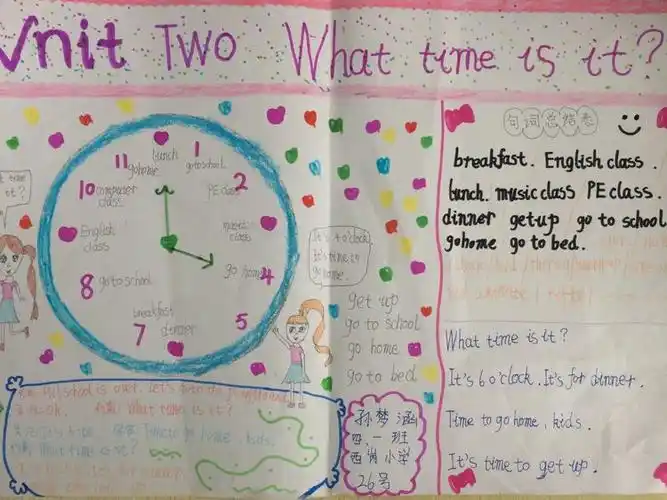 Unit Two What time is it?
句词总结表
breakfast. English class.
lunch. music class PE class.
dinner get up go to school
go home go to bed.
What time is it?
It's 6 o'clock. It's for dinner.
Time to go home, kids.
It's time to get up.
11 lunch 1
go home go to school
10 computer class
PE class 2
English class
music class
8 go to school
go home 4
breakfast
7 dinner
5
time
it?
It's 4 o'clock
It's time to
go home.
get up
go to school
go home
go to bed
孙梦涵
四.一班
西岗小学
26号
school is over. Let's
ok. What time is it?
home, kids.
What time is it?